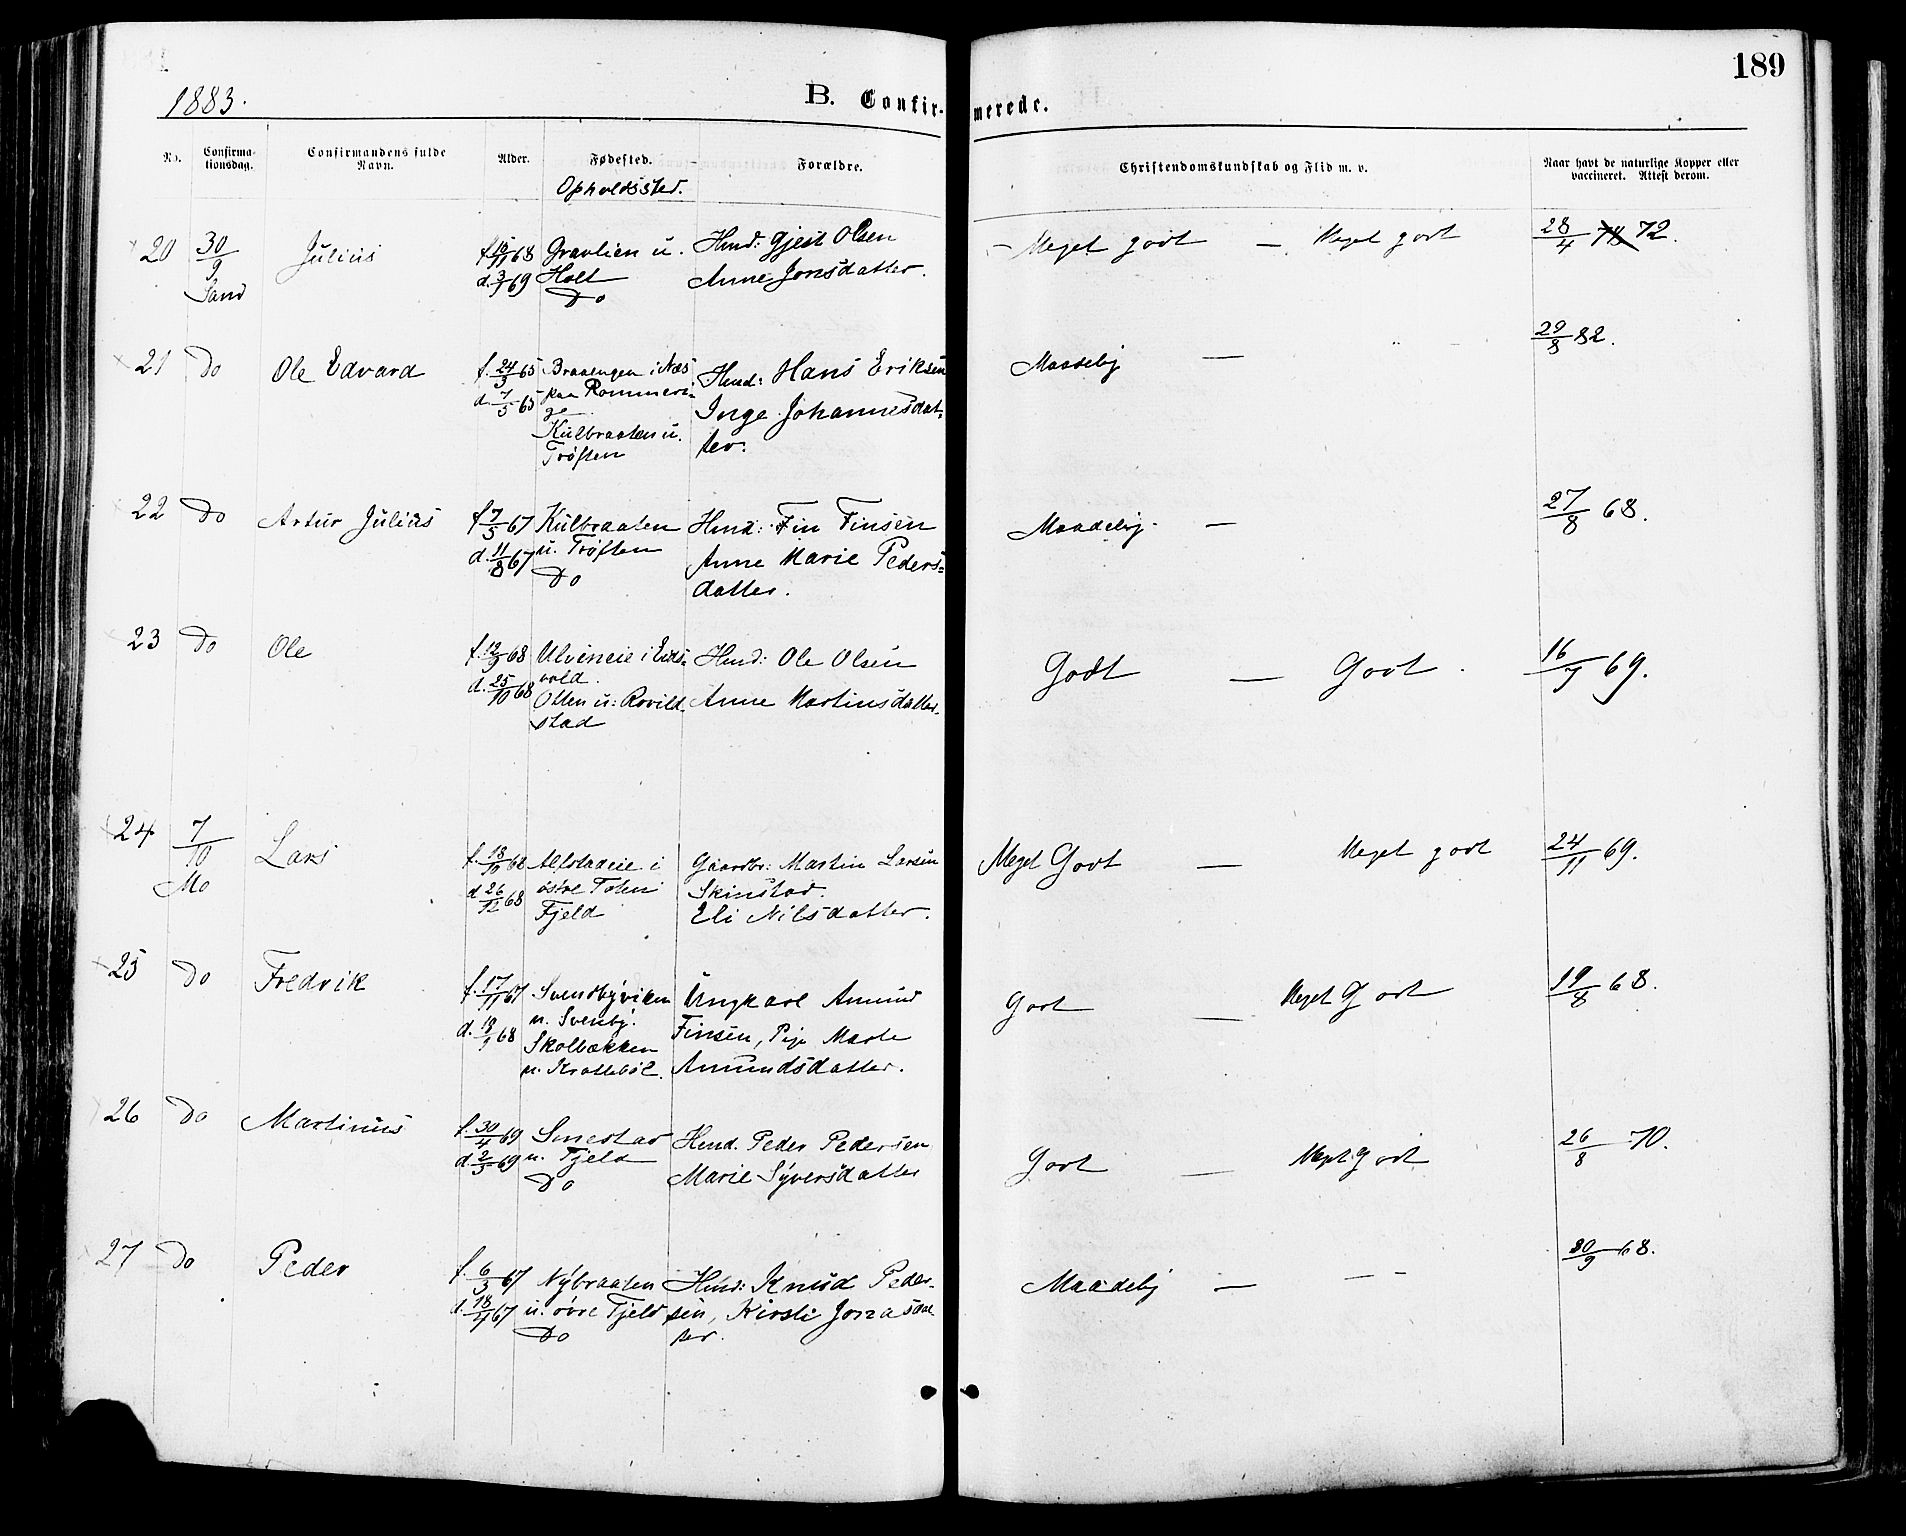 189
1883.
B. Confir-
merede.
No.
Confirma-
tionsdag.
Confirmandens fulde
Navn.
Alder.
Fødested.
Opholdssted.
Forældre.
Christendomskundskab og Flid m. v.
Naar havt de naturlige Kopper eller
vaccineret. Attest derom.
20 30/9 Julius
Sand
f. 68
d. 3/ 69
Gravlien u.
Holt
Do
Hmd: Gjest Olsen
Anne Jonsdatter.
Meget godt — Meget godt
28/4 72.
21 Do Ole Edvard
f. 24/3 65
d. 7/5 65
Braaengen i Næs
paa Romeri-
ge
Kulbraaten u.
Trøften
Hmd: Hans Eriksen
Inge Johannesdat-
ter.
Maadelig —
29/8 82.
22 Do Artur Julius
f 7/5 67
d. 11/8 67
Kulbraaten
u. Trøften
Do
Hmd: Fin Finsen
Anne Marie Peders-
datter.
Maadelig. —
27/8 68.
23 Do Ole
f. 12/9 68
d. 25/10 68
Ulvineie i Eids-
vold.
Olten u: Rovild-
stad
Hmd: Ole Olsen
Anne Martinsdatter.
Godt — Godt.
16/7 69.
24 7/10 Lars
Mo
f. 18/10 68
d 26/12 68
Alfstadeie i
østre Toten
Fjeld
Gaardbr: Martin Larsen
Skinstad.
Eli Nilsdatter.
Meget Godt — Meget godt
24/11 69.
25 Do Fredrik
f. 17/11 67
d. 19/1 68
Svendbyviken
u. Svenby.
Skolbækken
u. Krattebøl.
Ungkarl Amund
Finsen, Pige Marte
Amundsdatter.
Godt — Meget Godt
19/8 68.
26 Do Martinus
f. 30/4 69
d 2/5 69
Smestad
u. Fjeld
Do
Hmd. Peder Pedersen
Marie Syversdatter
Godt — Meget Godt
26/8 70.
27 Do Peder
f. 6/3 67
d. 18/4 67
Nybraaten
u. øvre Fjeld
Do
Hmd: Knud Peder-
sen, Kirsti Jonasdat
ter.
Maadelig — — -
30/9 68.